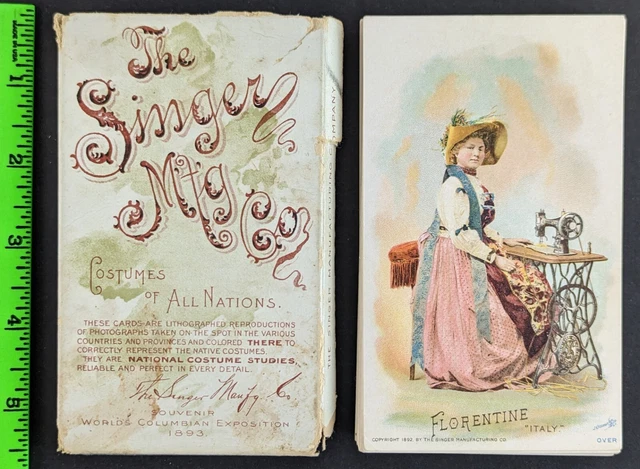 The
Singer
Mfg
Co
COSTUMES
OF ALL NATIONS.
THESE CARDS ARE LITHOGRAPHED REPRODUCTIONS
OF PHOTOGRAPHS TAKEN ON THE SPOT IN THE VARIOUS
COUNTRIES AND PROVINCES AND COLORED THERE TO
CORRECTLY REPRESENT THE NATIVE COSTUMES.
THEY ARE NATIONAL COSTUME STUDIES,
RELIABLE AND PERFECT IN EVERY DETAIL.
The Singer Manfg. Co.
SOUVENIR
WORLD'S COLUMBIAN EXPOSITION
1893.
THE SINGER MANUFACTURING COMPANY
FLORENTINE
"ITALY."
COPYRIGHT 1892 BY THE SINGER MANUFACTURING CO.
OVER
1
2
3
4
5